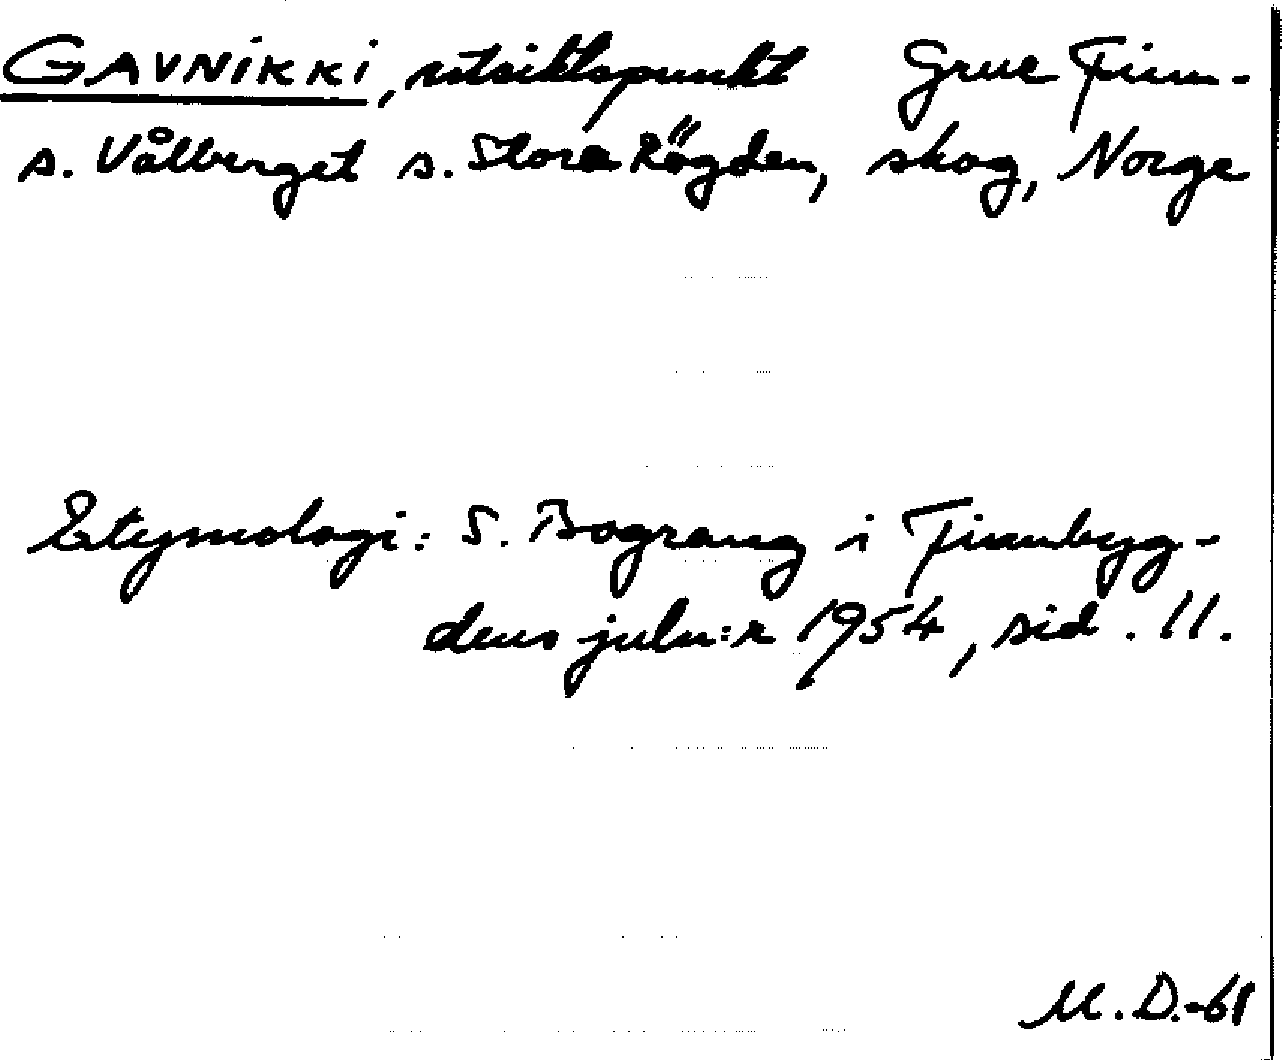 GAVNIKKI, utsiktspunkt Grue Finn-
s. Vålberget s. Stora Rögden, skog, Norge
Etymologi: S. Bograng i Finnbyg-
dens julnr: 1954, sid. 11.
M.D.-61